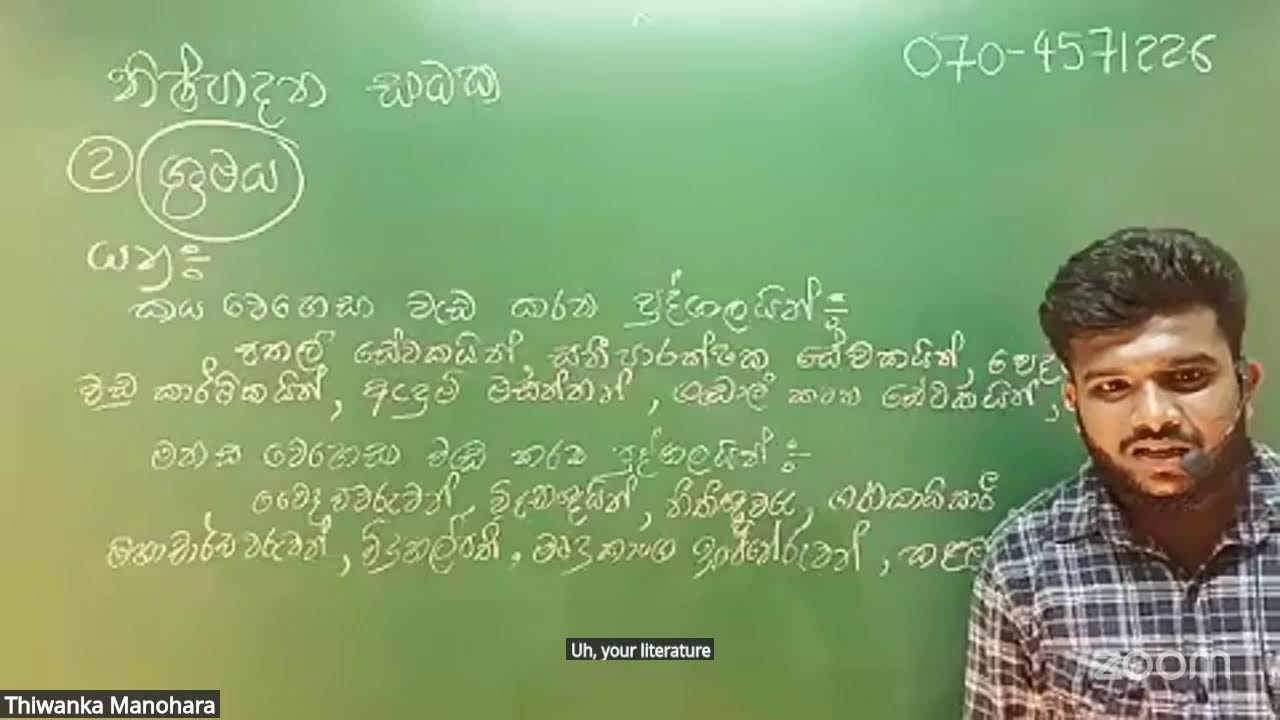 නිෂ්පාදන සාධක
070-4571226
② ශ්‍රමය
යනු :-
කය වෙහෙසා වැඩ කරන පුද්ගලයින් :-
පතල් සේවකයින්, සනීපාරක්ෂක සේවකයින්,
වඩු කාර්මිකයින්, ඇඳුම් මසන්නන්, ගඩොල් සේවකයින්,
මනස වෙහෙසා වැඩ කරන පුද්ගලයින් :-
වෛද්‍යවරුවන්, විද්‍යාඥයින්, නීතිඥවරු, ගණකාධිකාරී
මහාචාර්යවරුවන්, මෘදුකාංග ඉංජිනේරුවන්,
Uh, your literature
zoom
Thiwanka Manohara